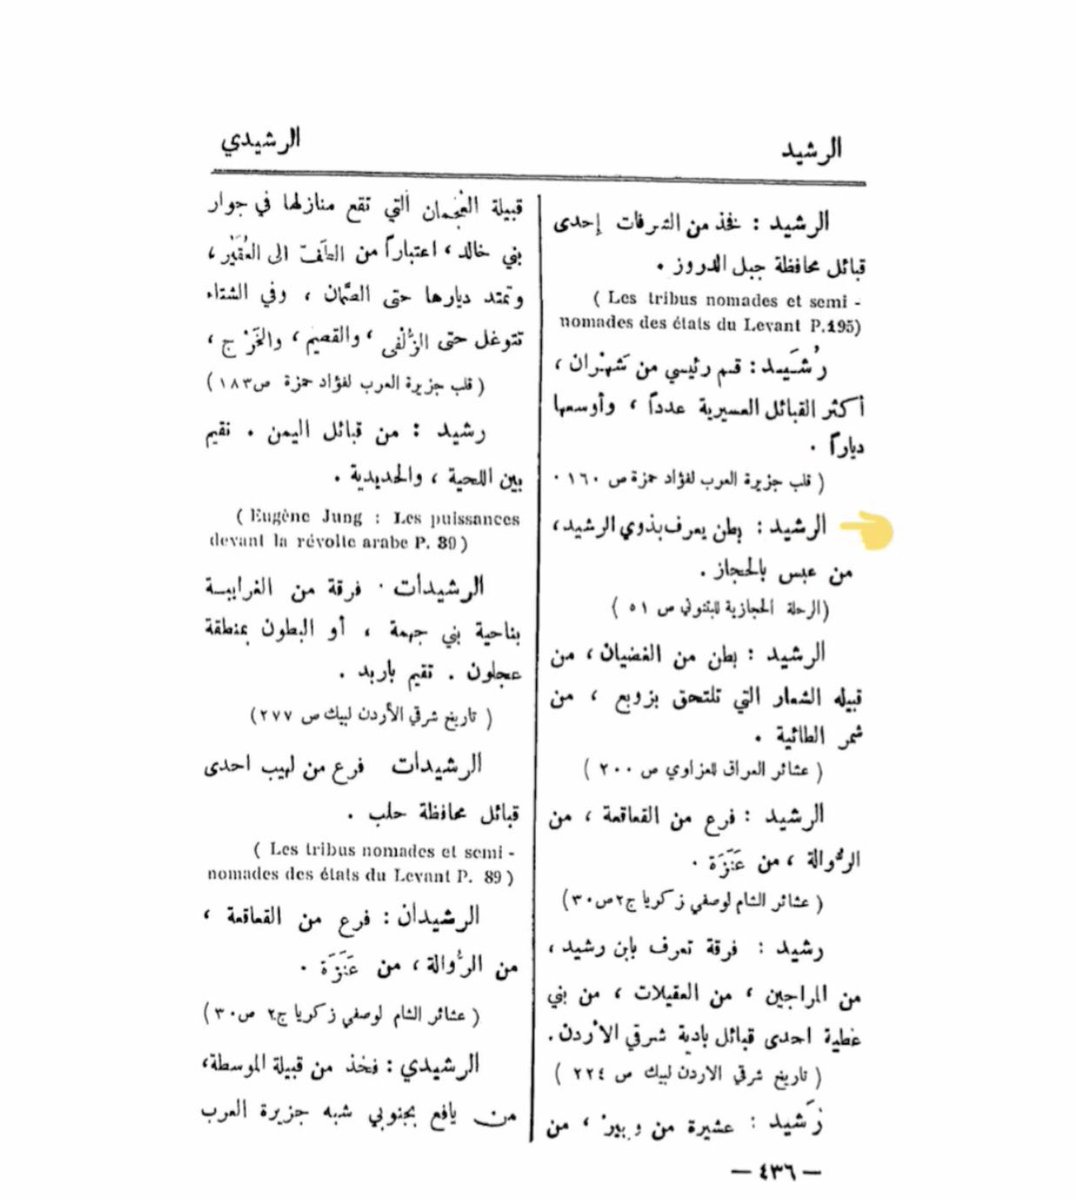 الرشيد
الرشيدي
الرشيد : فخذ من الشرفات إحدى
قبائل محافظة جبل الدروز .
( Les tribus nomades et semi -
nomades des états du Levant P.195)
رُشَيد : قسم رئيسي من شَهْران ،
أكثر القبائل العسيرية عدداً ، وأوسعها
دياراً .
( قلب جزيرة العرب لفؤاد حمزة ص ١٦٠ .
الرشيد : بطن يعرف بذوي الرشيد ،
من عبس بالحجاز .
(الرحلة الحجازية للبتنوني ص ٥١ )
الرشيد : بطن من الغضيان ، من
قبيله الشعار التي تلتحق بزوبع ، من
شمر الطائية .
( عشائر العراق للعزاوي ص ٢٠٠ )
الرشيد : فرع من القعاقعة ، من
الرُّوالة ، من عَنَزَة .
( عشائر الشام لوصفي زكريا ج٢ ص ٣٠)
رشيد : فرقة تعرف بابن رشيد ،
من المراجين ، من العقيلات ، من بني
عطية احدى قبائل بادية شرقي الأردن .
( تاريخ شرقي الاردن لبيك ص ٢٢٤ )
رَشيد : عشيرة من وبير ، من
قبيلة العُجْمان التي تقع منازلها في جوار
بني خالد ، اعتباراً من الطَّف الى العُقَيْر ،
وتمتد ديارها حتى الصَّمان ، وفي الشتاء
تتوغل حتى الزُّلْفى ، والقصيم ، والخَرْج ،
( قلب جزيرة العرب لفؤاد حمزة ص ١٨٣ )
رشيد : من قبائل اليمن . تقيم
بين اللحية ، والحديدية .
( Eugène Jung : Les puissances
devant la révolte arabe P. 39 )
الرشيدات . فرقة من الغرايبـة
بناحية بني جهمة ، أو البطون بمنطقة
عجلون . تقيم باربد .
( تاريخ شرقي الأردن لبيك ص ٢٧٧ )
الرشيدات فرع من لهيب احدى
قبائل محافظة حلب .
( Les tribus nomades et semi -
nomades des états du Levant P. 89 )
الرشيدان : فرع من القعاقعة ،
من الرُّوالة ، من عَنَزَة .
( عشائر الشام لوصفي زكريا ج٢ ص ٣٠)
الرشيدي : فخذ من قبيلة الموسطة ،
من يافع بجنوبي شبه جزيرة العرب
— ٤٣٦ —